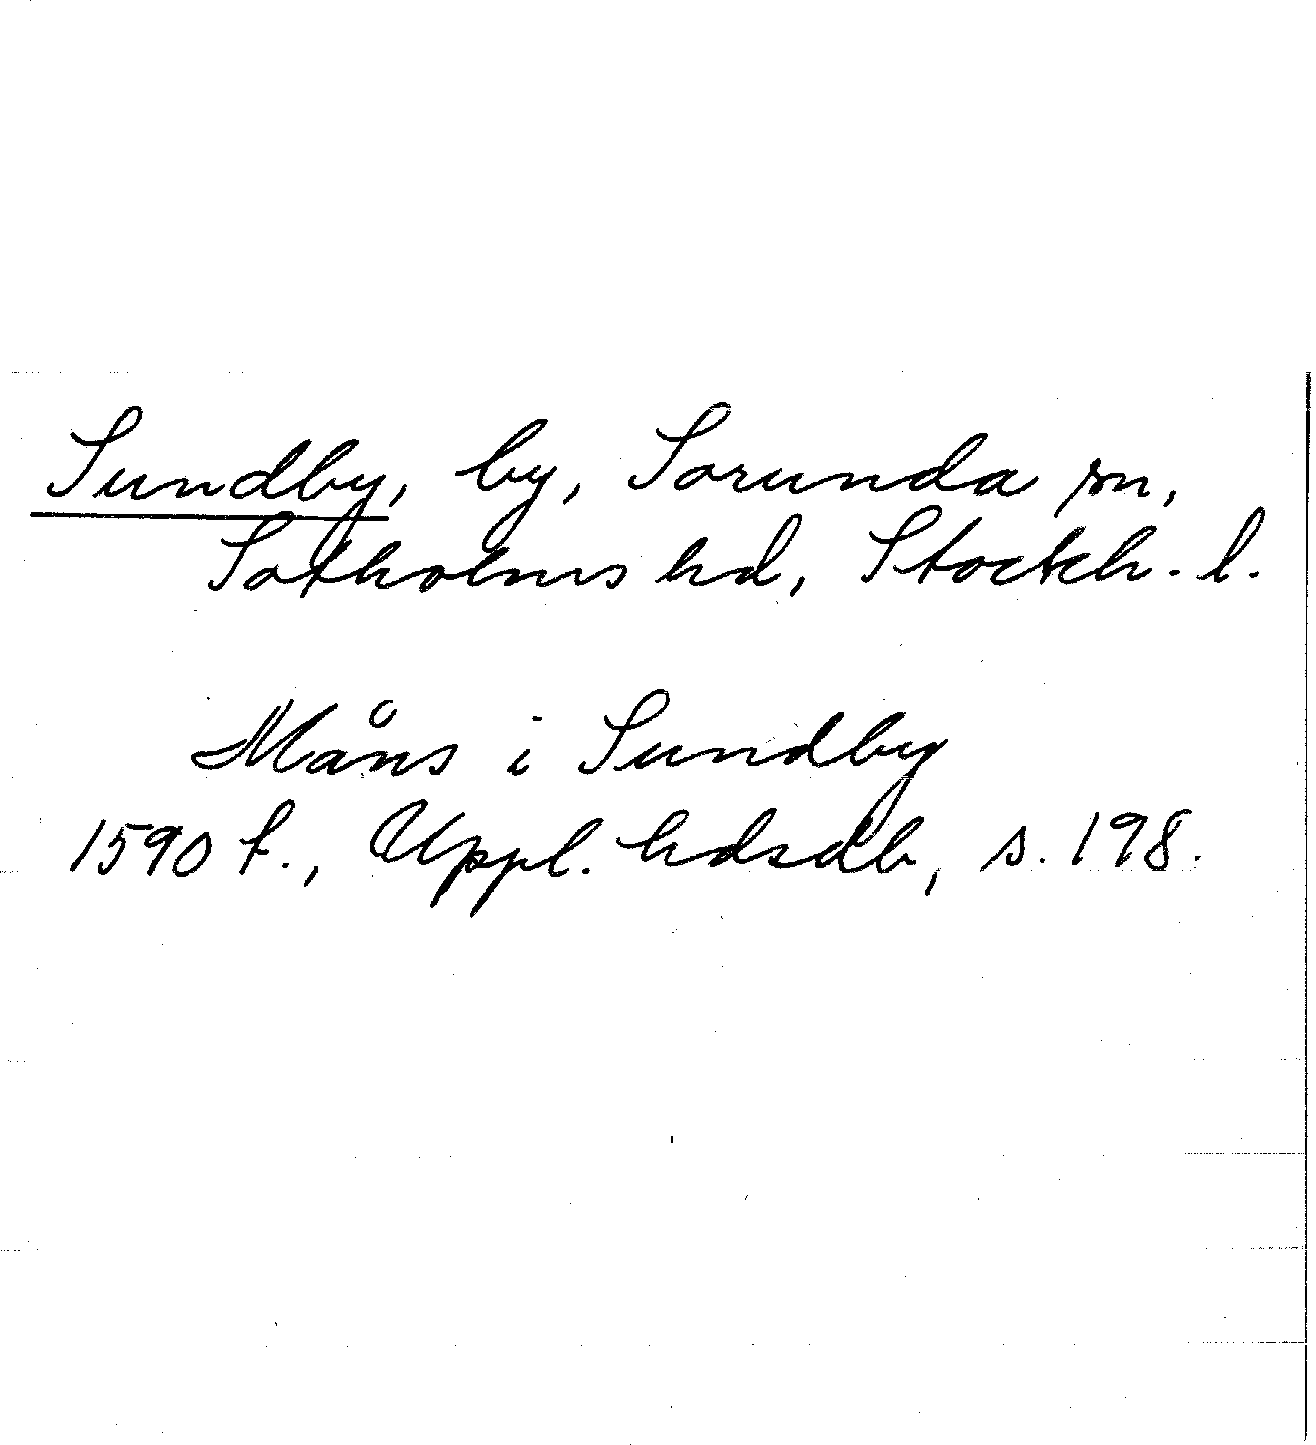 Sundby, by, Sorunda sn,
Sotholms hd, Stockh. l.
Måns i Sundby
1590 t., Uppl. hdsdb, s. 198.